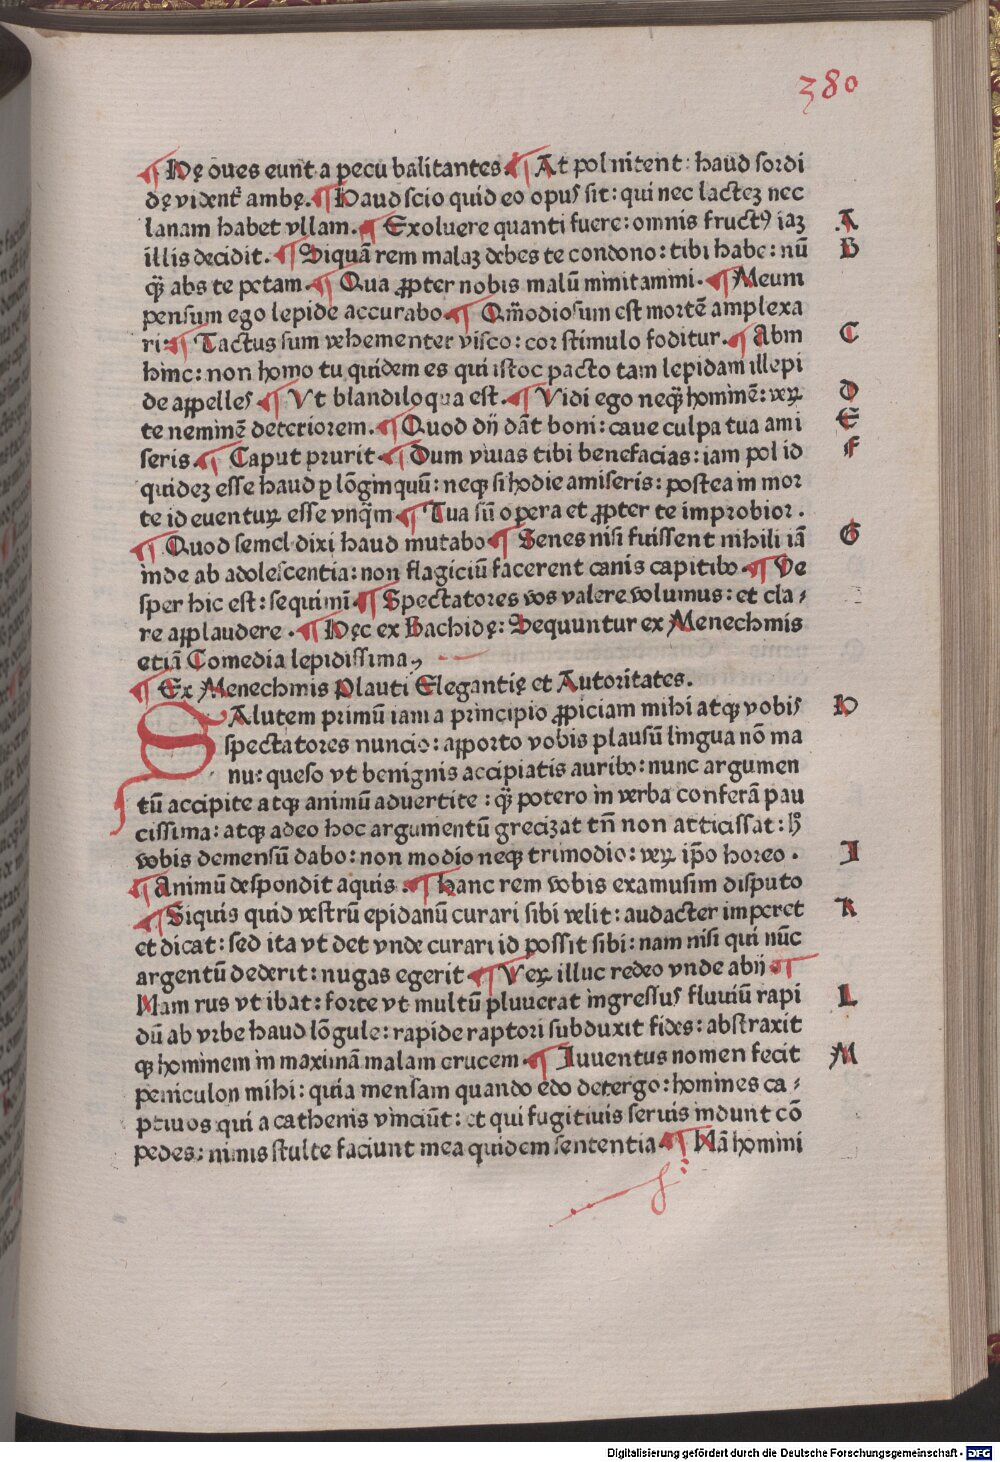 380
¶ Hę oues eunt a pecu balitantes. ¶ At pol nitent: haud sordi
dę vident᷑ ambę. ¶ Haud scio quid eo opus sit: qui nec lacteꝫ nec
lanam habet vllam. ¶ Exoluere quanti fuere: omnis fructꝰ iaꝫ
A
illis decidit. ¶ Siquã rem malaꝫ debes te condono: tibi habe: nũ
B
qᷓꝫ abs te petam. ¶ Qua ꝓpter nobis malũ minitammi. ¶ Meum
pensum ego lepide accurabo ¶ Qm̃odiosum est mortẽ amplexa
ri: ¶ Tactus sum vehementer visco: cor stimulo foditur. ¶ Abin
C
hinc: non homo tu quidem es qui istoc pacto tam lepidam illepi
de aꝓpelles ¶ Vt blandiloqua est. ¶ Vidi ego neqꝫ hominẽ: veꝝ
D
te neminẽ deteriorem. ¶ Quod dij dãt boni: caue culpa tua ami
E
seris. ¶ Caput prurit ¶ Dum viuas tibi benefacias: iam pol id
F
quideꝫ esse haud ꝑ lõginquũ: neqꝫ si hodie amiseris: postea in mor
te id euentuꝝ esse vnqᷓm ¶ Tua sũ opera et ꝓpter te improbior.
¶ Quod semel dixi haud mutabo ¶ Senes nisi fuissent nihili iã
G
inde ab adolescentia: non flagiciũ facerent canis capitibꝰ ¶ Ve
sper hic est: sequimĩ ¶ Spectatores vos valere volumus: et cla⸗
re aꝓplaudere. ¶ Hęc ex Bachidę: Sequuntur ex Menechmis
etiã Comedia lepidissima
¶ Ex Menechmis Plauti Elegantię et Autoritates.
SAlutem primũ iam a principio ꝓpiciam mihi atqꝫ vobis
H
spectatores nuncio: aꝓporto vobis plausũ lingua nõ ma
nu: queso vt benignis accipiatis auribꝰ: nunc argumen
tũ accipite atqꝫ animũ aduertite: qᷓꝫ potero in verba conferã pau
cissima: atqꝫ adeo hoc argumentũ grecizat tñ non atticissat: h̃
vobis demensũ dabo: non modio neqꝫ trimodio: veꝝ ip̃o horeo.
I
¶ Animũ despondit aquis. ¶ Hanc rem vobis examusim disputo
¶ Siquis quid vestrũ epidanũ curari sibi velit: audacter imperet
K
et dicat: sed ita vt det vnde curari id possit sibi: nam nisi qui nũc
argentũ dederit: nugas egerit ¶ Veꝝ illuc redeo vnde abij ¶
Nam rus vt ibat: forte vt multũ pluuerat ingressus fluuiũ rapi
L
dũ ab vrbe haud lõgule: rapide raptori subduxit fides: abstraxit
qꝫ hominem in maximã malam crucem. ¶ Iuuentus nomen fecit
M
peniculon mihi: quia mensam quando edo detergo: homines ca⸗
ptiuos qui a cathenis vinciũt: et qui fugitiuis seruis indunt cõ
pedes: nimis stulte faciunt mea quidem sententia ¶ Nã homini
Digitalisierung gefördert durch die Deutsche Forschungsgemeinschaft - DFG